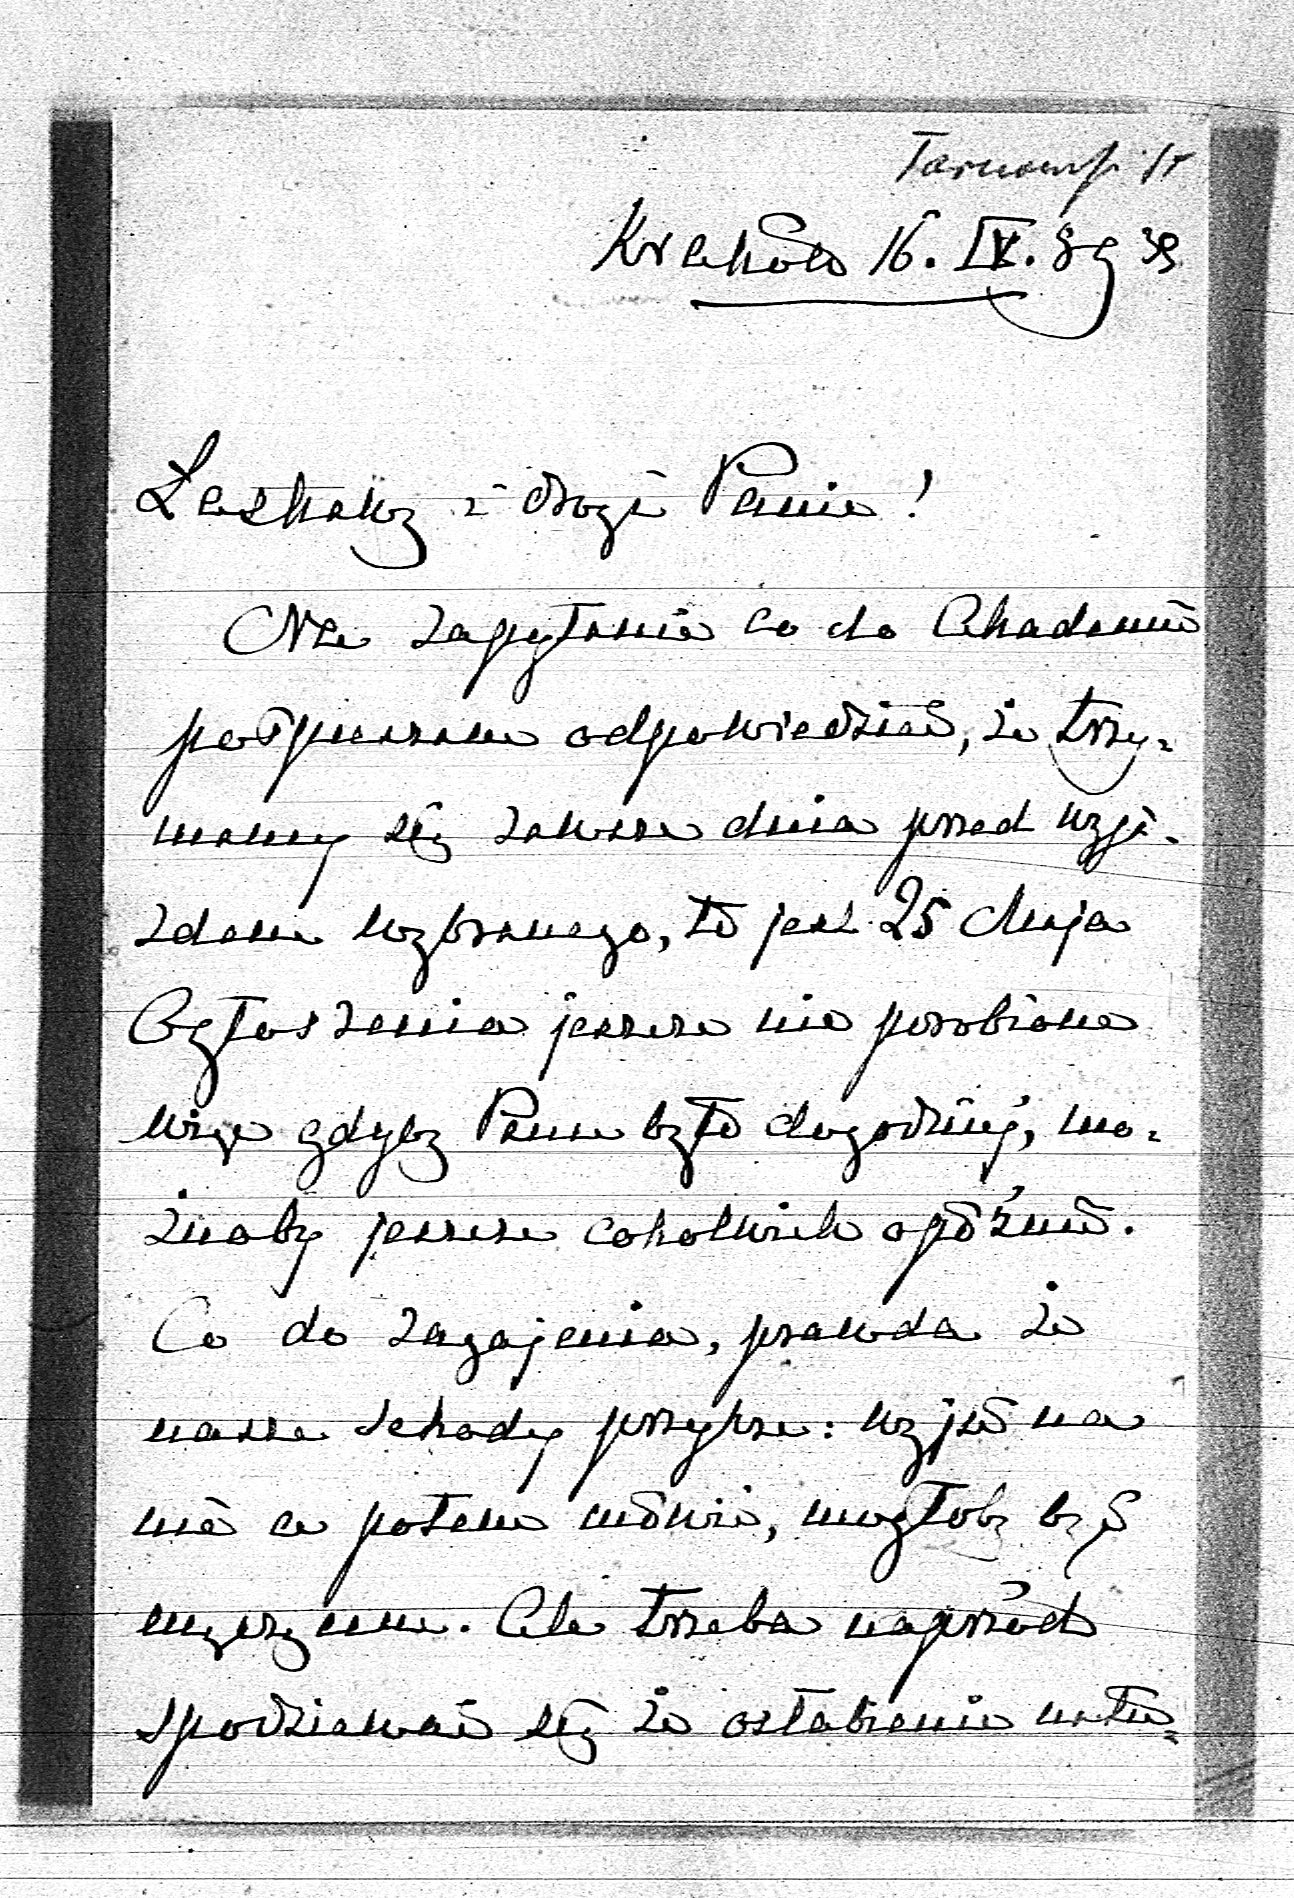 Tarnowski St
Kraków 16. IV. 89 39
Łaskawy i drogi Panie!
Na zapytanie co do Akademii
pośpieszam odpowiedzieć, że trzy-
mamy się zawsze dnia przed wyja-
zdem wybranego, to jest 25 Maja
Ogłoszenia jeszcze nie porobione
więc gdyby Panu było dogodniej, mo-
żnaby jeszcze cokolwiek opóźnić.
Co do zagajenia, prawda że
nasze schody przykre: wyjść na
nie a potem mówić, mogłoby być
męczącem. Ale trzeba naprzód
spodziewać się że osłabienie ustą-